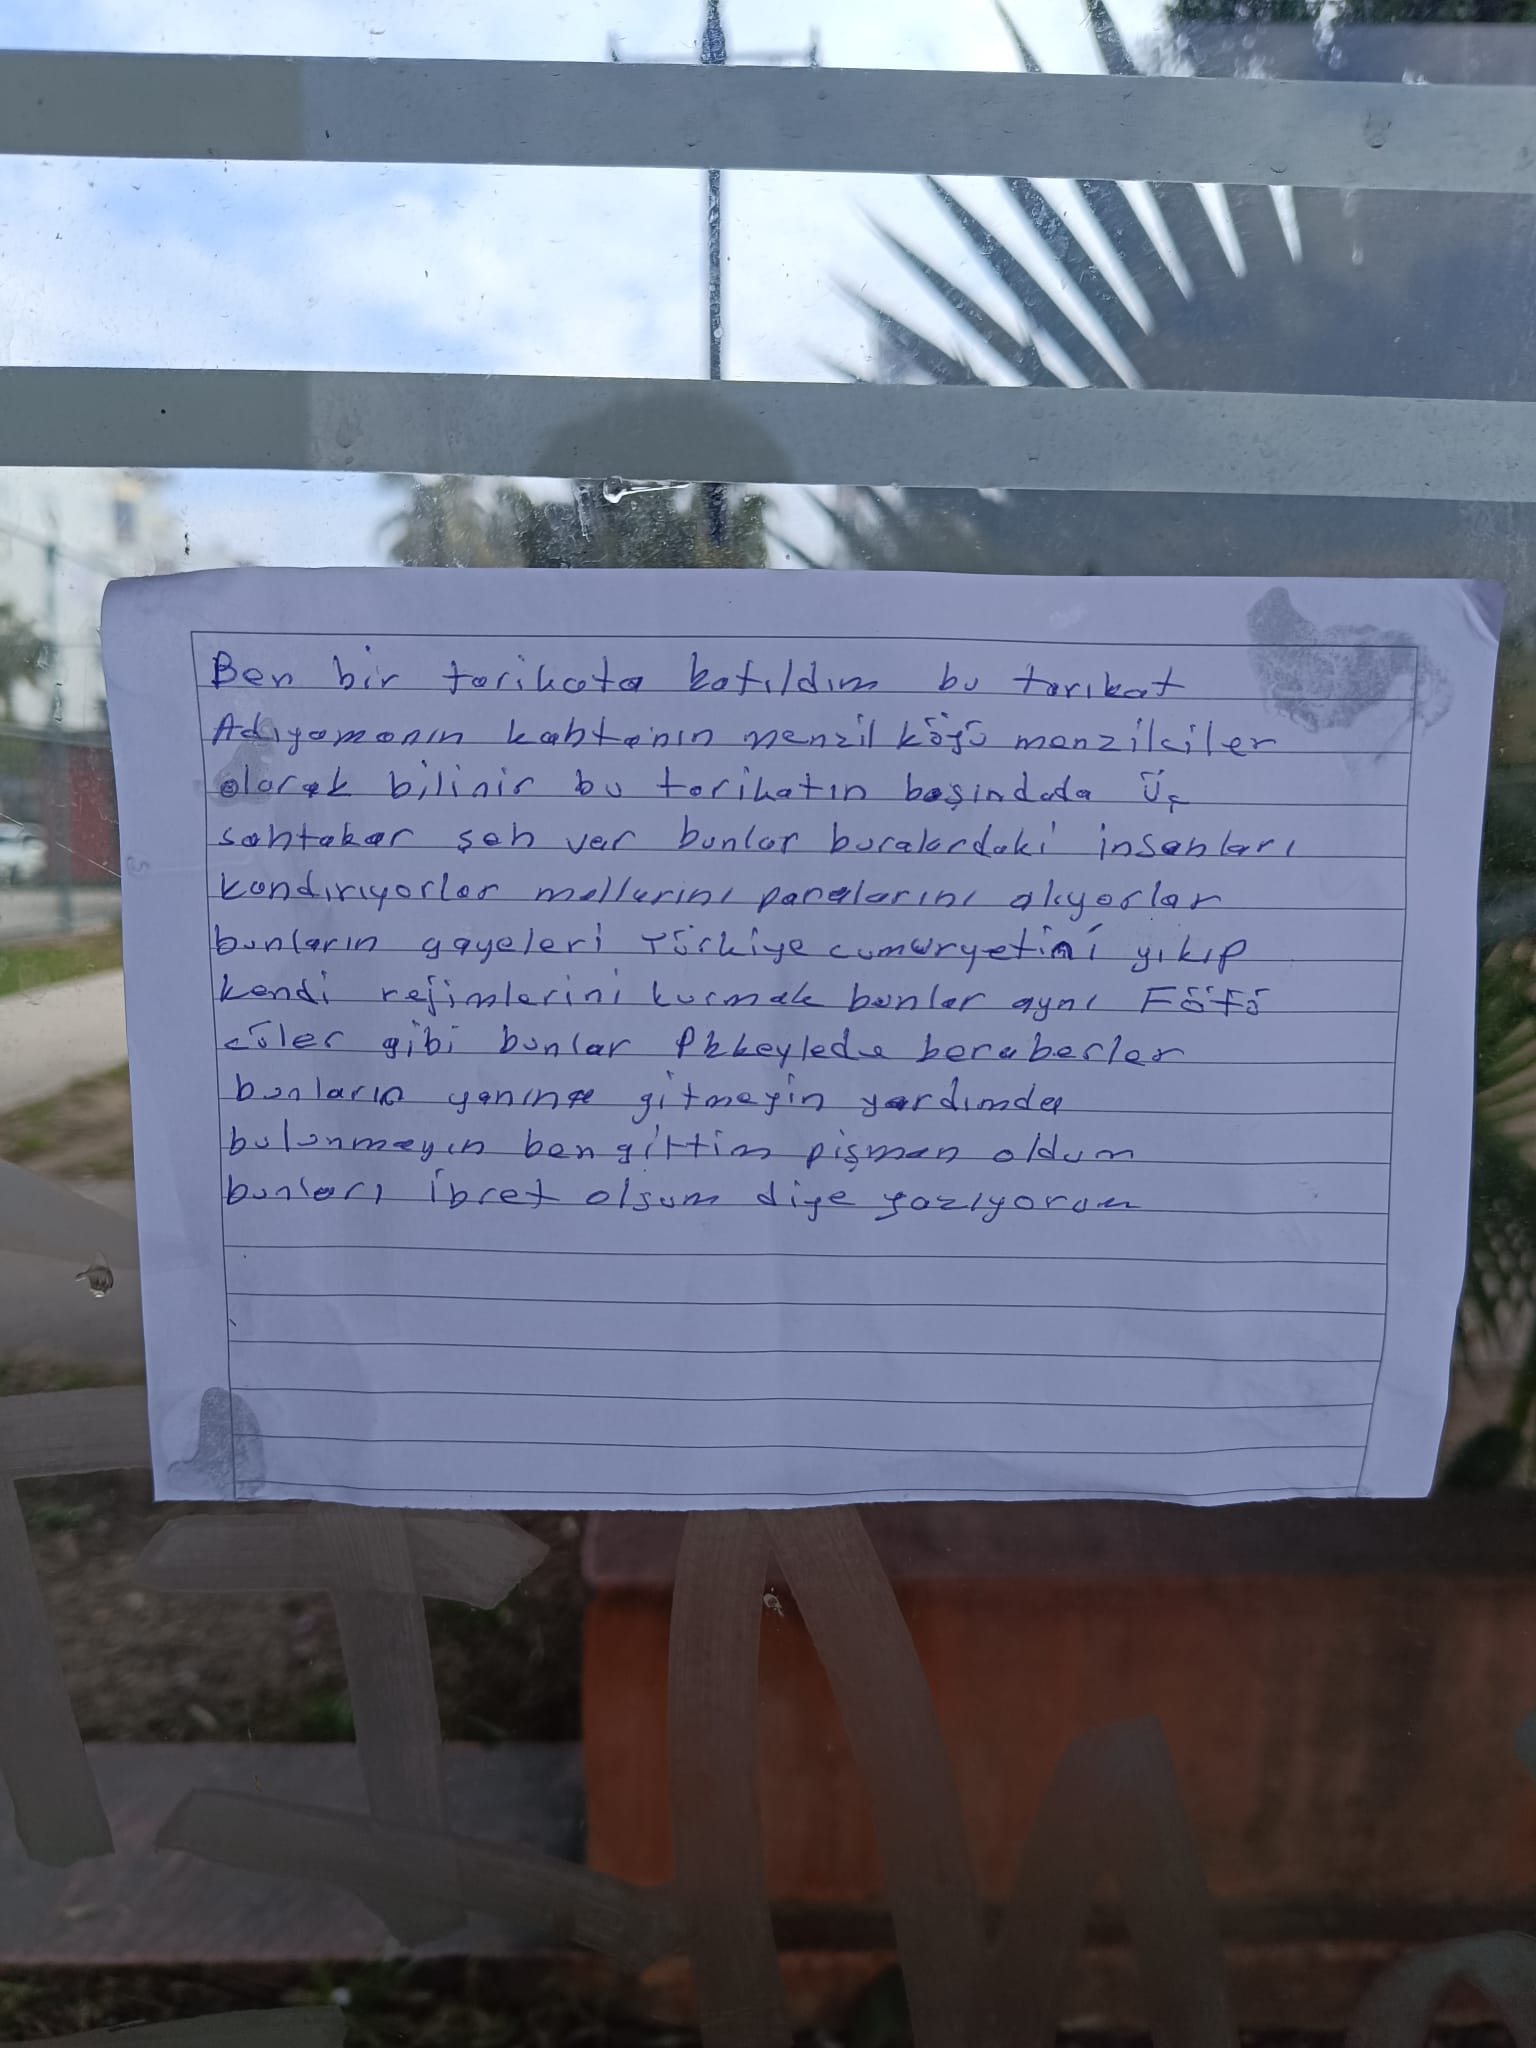 Ben bir tarikata katıldım bu tarikat
Adıyamanın kahta'nın menzil köyü menzilciler
olarak bilinir bu tarikatın başındada üç
sahtakar şeh var bunlar buralardaki insanları
kandırıyorlar mallarını paralarını alıyorlar
bunların gayeleri Türkiye cumuryetini yıkıp
kendi rejimlerini kurmak bunlar aynı Fötö
cüler gibi bunlar Pkkeylede beraberler
bunların yanına gitmeyin yardımda
bulunmayın ben gittim pişman oldum
bunları ibret olsum diye yazıyorum